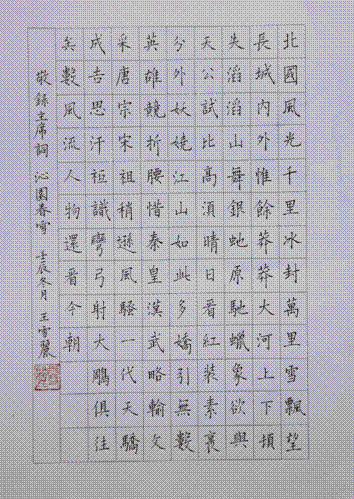 北國風光千里冰封萬里雪飄望
長城内外惟餘莽莽大河上下頓
失滔滔山舞銀虵原馳蠟象欲與
天公試比高須晴日看紅裝素裹
分外妖嬈江山如此多嬌引無數
英雄競折腰惜秦皇漢武略輸文
采唐宗宋祖稍遜風騷一代天驕
成吉思汗衹識彎弓射大鵰俱往
矣數風流人物還看今朝
敬錄主席詞 沁園春雪 壬辰冬月 王雪麗